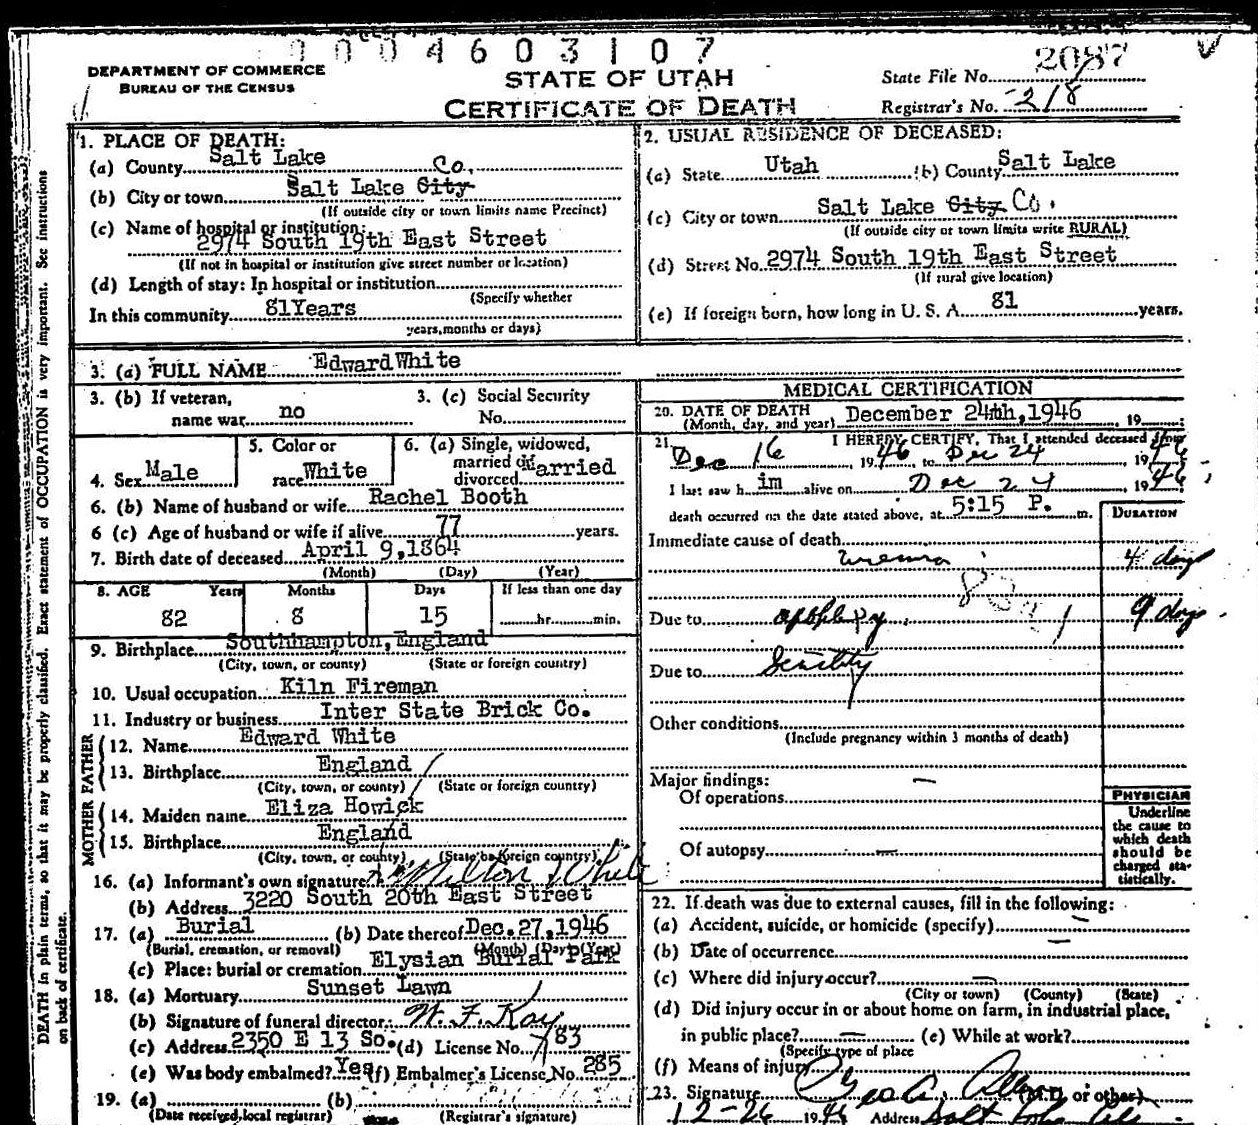 0004603107
2087
DEPARTMENT OF COMMERCE
BUREAU OF THE CENSUS
STATE OF UTAH
CERTIFICATE OF DEATH
State File No.
Registrar's No. 218
DEATH in plain terms, so that it may be properly classified. Exact statement of OCCUPATION is very important. See instructions
on back of certificate.
1. PLACE OF DEATH:
(a) County Salt Lake
(b) City or town Salt Lake City Co.
(If outside city or town limits name Precinct)
(c) Name of hospital or institution:
2974 South 19th East Street
(If not in hospital or institution give street number or location)
(d) Length of stay: In hospital or institution
(Specify whether
In this community 81Years
years, months or days)
2. USUAL RESIDENCE OF DECEASED:
(a) State Utah (b) County Salt Lake
(c) City or town Salt Lake City Co.
(If outside city or town limits write RURAL)
(d) Street No. 2974 South 19th East Street
(If rural give location)
(e) If foreign born, how long in U. S. A. 81 years.
3. (a) FULL NAME Edward White
3. (b) If veteran,
name war no
3. (c) Social Security
No.
4. Sex Male
5. Color or
race White
6. (a) Single, widowed,
married or
divorced Married
6. (b) Name of husband or wife Rachel Booth
6 (c) Age of husband or wife if alive 77 years.
7. Birth date of deceased April 9,1864
(Month) (Day) (Year)
8. AGE Years Months Days If less than one day
82 8 15 hr. min.
9. Birthplace Southhampton, England
(City, town, or county) (State or foreign country)
10. Usual occupation Kiln Fireman
11. Industry or business Inter State Brick Co.
FATHER
12. Name Edward White
13. Birthplace England
(City, town, or county) (State or foreign country)
MOTHER
14. Maiden name Eliza Howick
15. Birthplace England
(City, town, or county) (State or foreign country)
16. (a) Informant's own signature Milton White
(b) Address 3220 South 20th East Street
17. (a) Burial (b) Date thereof Dec.27,1946
(Burial, cremation, or removal) (Month) (Day) (Year)
(c) Place: burial or cremation Elysian Burial Park
18. (a) Mortuary Sunset Lawn
(b) Signature of funeral director: W. F. Kay
(c) Address 2350 E 13 So. (d) License No. 783
(e) Was body embalmed? Yes (f) Embalmer's License No. 285
19. (a) (b)
(Date received, local registrar) (Registrar's signature)
MEDICAL CERTIFICATION
20. DATE OF DEATH
(Month, day, and year) December 24th,1946 19
21. I HEREBY CERTIFY, That I attended deceased from
Dec 16, 1946, to Dec 24, 1946
I last saw him alive on Dec 24, 1946
death occurred on the date stated above, at 5:15 P. m.
DURATION
Immediate cause of death
uremia 4 days
Due to apoplexy 9 days
Due to Senility
Other conditions
(Include pregnancy within 3 months of death)
Major findings:
Of operations
Of autopsy
PHYSICIAN
Underline
the cause to
which death
should be
charged sta-
tistically.
22. If death was due to external causes, fill in the following:
(a) Accident, suicide, or homicide (specify)
(b) Date of occurrence
(c) Where did injury occur?
(City or town) (County) (State)
(d) Did injury occur in or about home on farm, in industrial place,
in public place? (e) While at work?
(Specify type of place
(f) Means of injury
23. Signature Geo A. (M.D. or other)
12-26 1946 Address Salt Lake